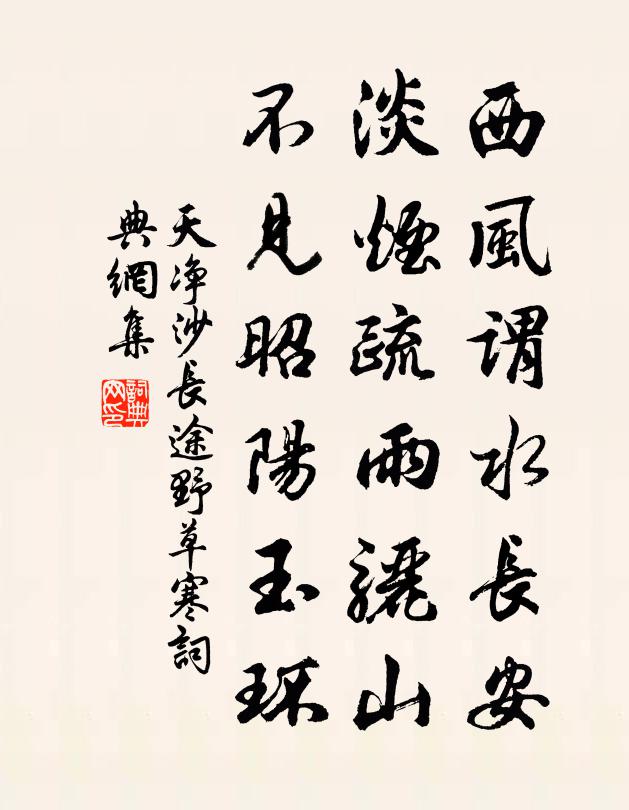 西風謂水長安
淡煙疏雨驪山
不見昭陽玉环
天净沙長途野草寒詞
典網集
詞典
网印